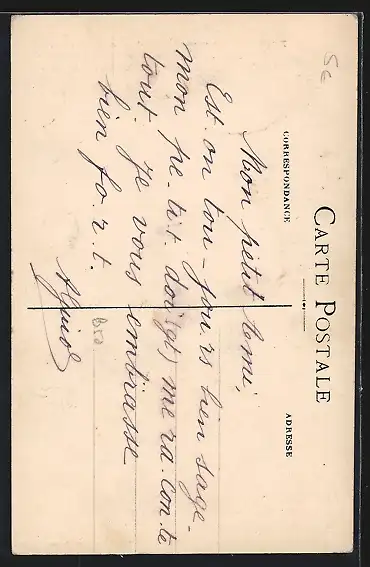 CARTE POSTALE
CORRESPONDANCE
ADRESSE
Mon petit Ami,
Est-on tou-jou.rs bien sage-
mon pe-tit doi(gt) me ra.con.te
tout. Je vous embrasse
bien fo.r.t.